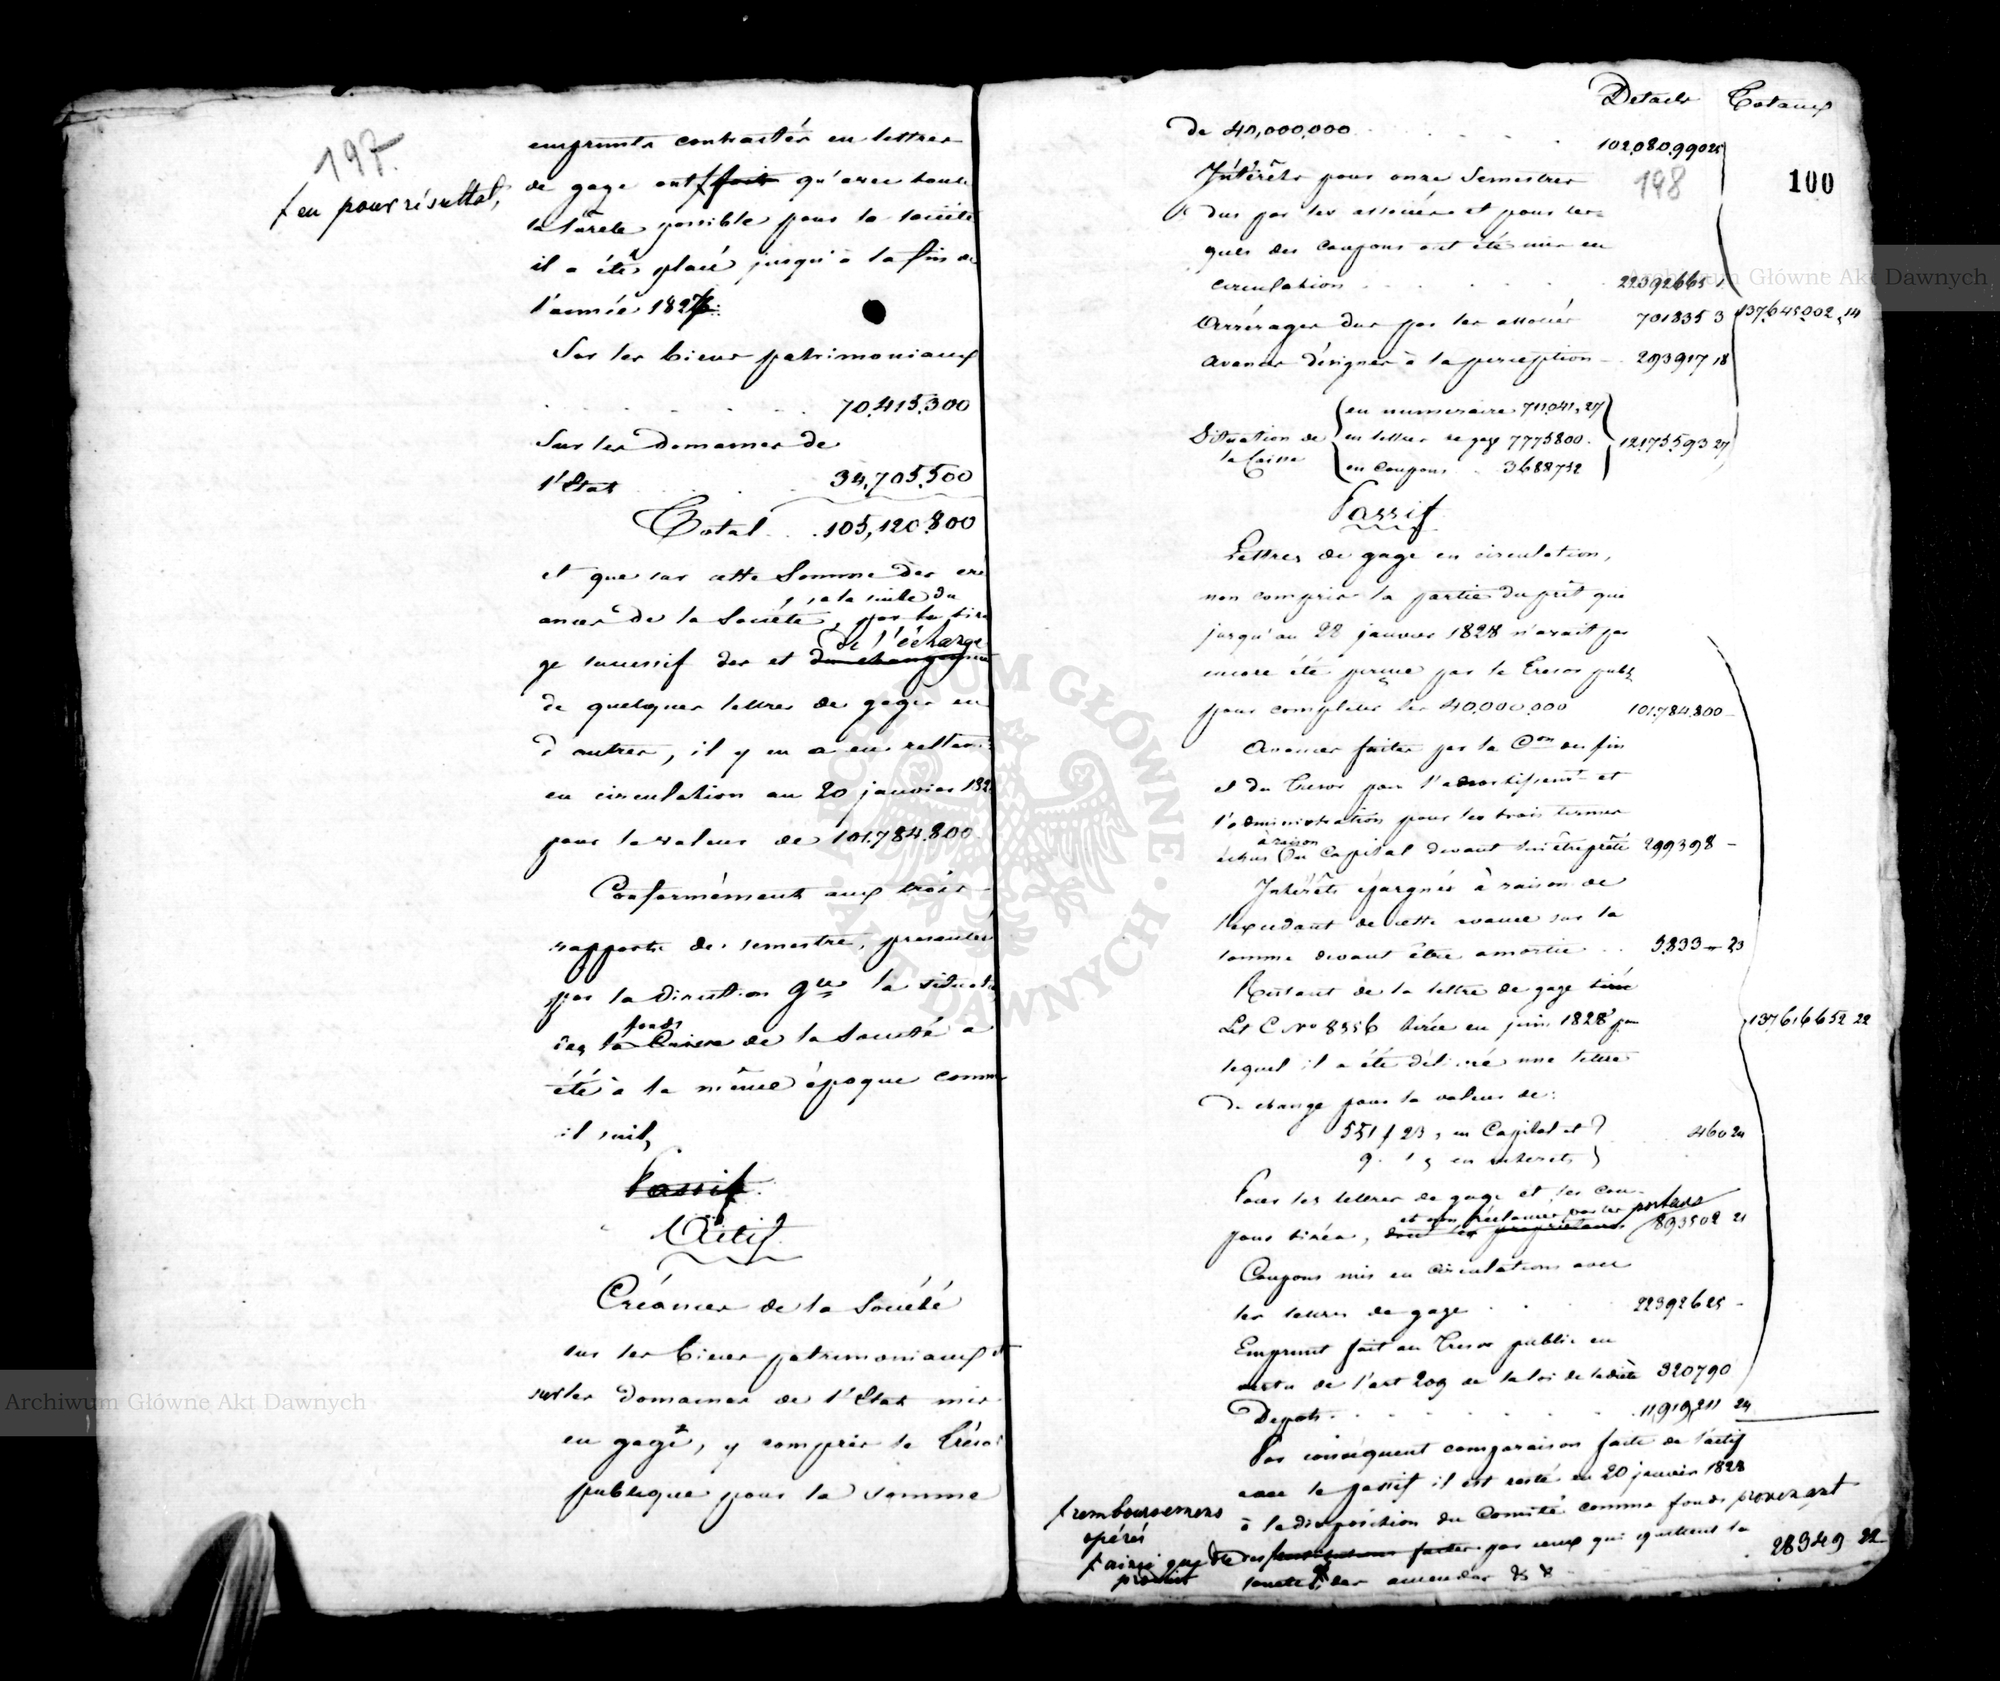 197.
emprunts contractés en lettres
de gage ont fait qu'avec toute
+ eu pour résultat,
la sûreté possible pour la société
il a été placé jusqu'à la fin de
l'année 1827
Sur les biens patrimoniaux
70,415,300
Sur les domaines de
l'Etat 34,705,500
Total . . 105,120,800
et que sur cette Somme des cré
à la suite du
ances de la Société, par le tira
de l'échange
ge successif des et du changement
de quelques lettres de gages en
d'autres, il y en a eu
en circulation au 20 janvier 182
pour la valeur de 101,784,800
Conformément aux trois
rapports de semestre, présentés
par la direction gle la situati
fonds
de la Société a
été à la même époque comme
il suit,
Passif
Actif
Créances de la Société
sur les biens patrimoniaux et
sur les domaines de l'Etat mis
en gage, y compris le Trésor
publique pour la somme
Détails Totaux
de 40,000,000 102,080,990 25
Intérêts pour onze Semestres 198
100
dus par les associés et pour les
quels des coupons ont été mis en
circulation 22392665 1
Arrérages dus par les associés 701835 3
137,645,002 14
Avances désignées à la perception 293917 18
en numeraire 711,041,27
Situation de en lettres de gage 7775800 12175593 27
la Caisse en coupons 3688752
Passif
Lettres de gage en circulation,
non compris la partie du prêt qui
jusqu'au 22 janvier 1828 n'avait pas
encore été perçue par le Tresor publ
pour completer les 40,000,000 101,784,800 –
Avances faites par la Con des fin
et du Tresor pour l'amortissemt et
l'administration pour les trois termes
à raison
échus du Capital devant lui être prêté 299398 –
Intérêts épargnés à raison de
l'excédant de cette avance sur la
somme devant être amortie . . 5833 – 23
Restant de la lettre de gage tirée
Lit C No 8556 tirée en juin 1828 pour
137,616,652 22
lequel il a été délivré une lettre
de change pour la valeur de:
551 f 23, en Capital et
460 24
9. 15 en interets
Pour les lettres de gage et les cou-
et non réclamés par les porteurs
pons tirés, dont les propriétaires 893502 21
Coupons mis en circulations avec
les lettres de gage 22392625 –
Emprunt fait au Tresor public en
vertu de l'art 209 de la loi de la diète 320790
Depots 11,919,211 24
Par conséquent comparaison faite de l'actif
avec le passif il est resté au 20 janvier 1828
à la disposition du Comité comme fonds provenant
+ remboursemens
opérés
des faites par ceux qui quittent la
28349 22
+ ainsi que du
produit
société, des amendes &c &c
Archiwum Główne Akt Dawnych
Archiwum Główne Akt Dawnych
ARCHIWUM GŁÓWNE · AKT DAWNYCH ·